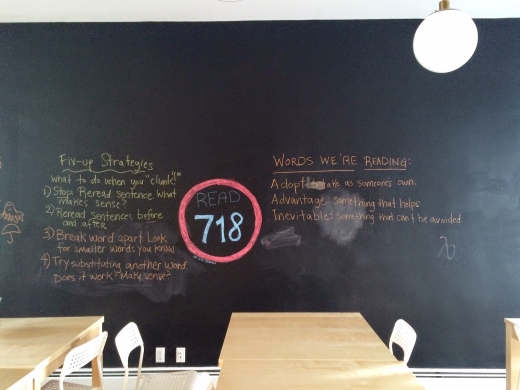 Fix-up Strategies
what to do when you "clunk!"
1) Stop. Reread sentence. What
makes sense?
2) Reread sentences before
and after
3) Break word apart. Look
for smaller words you know
4) Try substituting another word.
Does it work? Make sense?
READ
718
WORDS WE'RE READING:
Adopt: take as someone's own.
Advantage: something that helps
Inevitable: something that can't be avoided